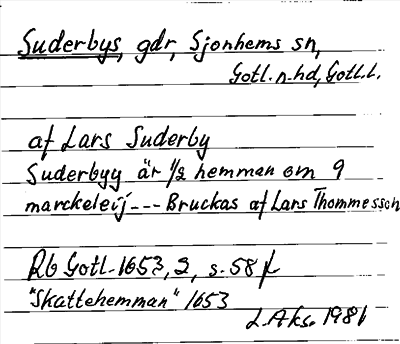 Suderbys, gdr, Sjonhems sn,
Gotl. n. hd, Gotl. l.
af Lars Suderby
Suderbyy är 1/2 hemman om 9
marckeleij --- Bruckas af Lars Thommesson
Rb Gotl. 1653, 2, s. 58 f
"Skattehemman" 1653
L. Aks. 1981